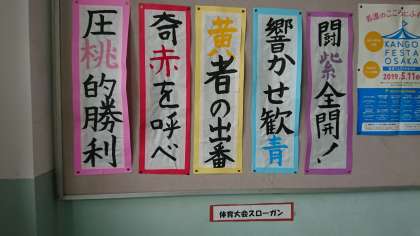 闘紫全開!
響かせ歓青
黄者の出番
奇赤を呼べ
圧桃的勝利
KANGO
FESTA
OSAKA
2019.5.11
体育大会スローガン